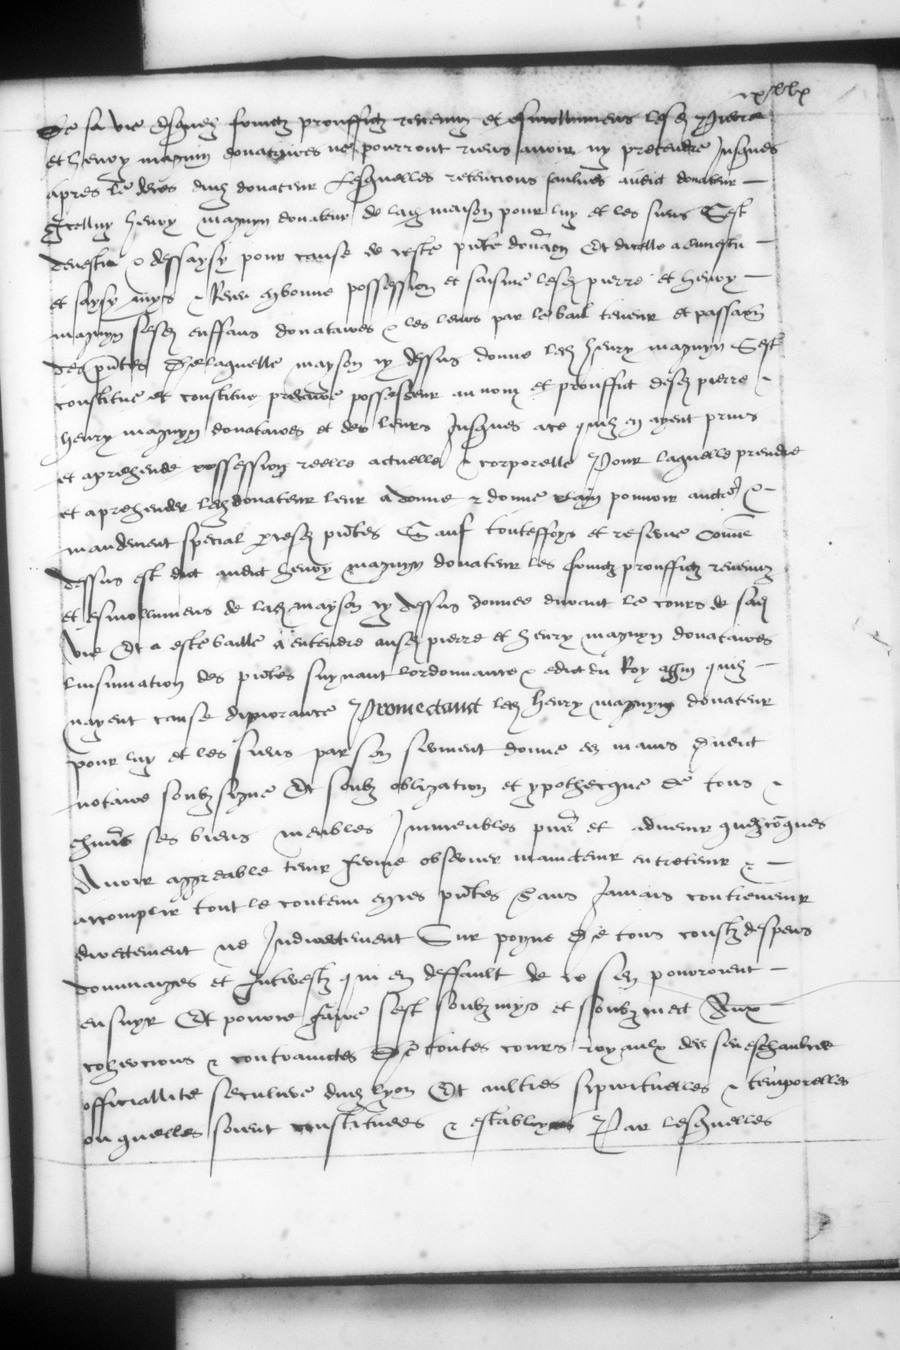 De sa vie desquelz fruictz prouffictz revenuz et esmollumens lesd pierre
et henry magnyn donataires ne pourront riens avoir ny pretendre Jusques
apres le deces dud donateur Lesquelles retencions saulves audict donateur
Icelluy henry magnyn donateur de lad maison pour luy et les siens Cest
devestu & dessaysy pour cause de ceste pnte donaon Et dicelle a envestu
et saysy mys & bonne possession et saisine lesd pierre et henry
magnyn sesd enffans donataires & les leurs par le bail teneur et passaon
des pntes De laquelle mayson cy dessus donne led henry magnyn Sest
constitue et constitue precaire possesseur au nom et prouffict desd pierre
henry magnyn donataires et des leurs Jusques ace quilz en ayent prins
et aprehende possession reelle actuelle & corporelle Pour laquelle prendre
et aprehender led donateur leur a donne & donne plain pouvoir auctte &
mandement special par cesd pntes Sauf touteffoys et reserve comme
dessus est dict audict henry magnyn donateur les fruictz prouffictz revenuz
et esmollumens de lad mayson cy dessus donnee durant le cours de sad
vie Et a este baille a entendre ausd pierre et henry magnyn donataires
linsinuation des pntes suyvant lordonnance & edict du Roy affin quilz
nayent cause dignorance Promectant led henry magnyn donateur
pour luy et les siens par son serment donne es mains dudict
notaire soubzsigne Et soubz obligation et ypothecque de tous &
chuns ses biens meubles Immeubles pns et advenir quelzcoques
Avoir aggreable tenir ferme observer maintenir entretenir &
accomplir tout le contenu esdes pntes Sans Jamais contrevenir
directement ne Indirectement Sur poyne De tous coustz despens
dommaiges et Interestz qui en deffault de ce sen pourroient
ensuyr Et pource faire sest soubzmys et soubzmect Aux
cohercions & contrainctes De toutes cours royaulx des seneschaulcee
officiallite seculiere dud lyon Et aultres spirituelles & temporelles
ou quelles soient constituees & establyes Par lesquelles